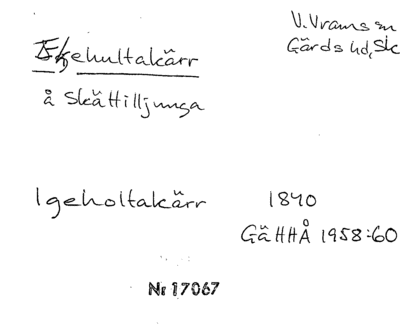 V. Vrams sn
Gärds hd, Sk
Ekehultakärr
å Skättilljunga
Igeholtakärr 1840
GäHHÅ 1958:60
Nr 17067